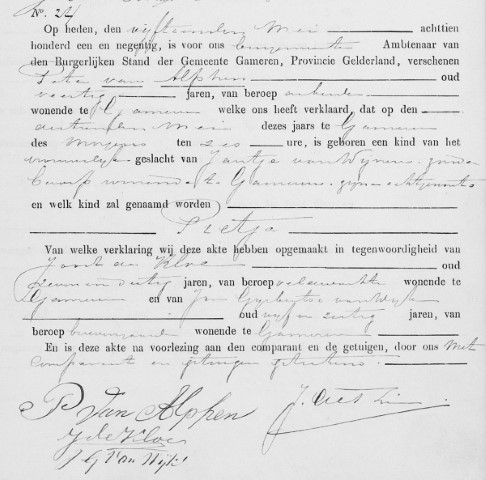 No. 24
Op heden, den vijftienden Mei achttien
honderd een en negentig, is voor ons Ambtenaar van
den Burgerlijken Stand der Gemeente Gameren, Provincie Gelderland, verschenen
Peter van Alphen oud
veertig jaren, van beroep arbeider
wonende te Gameren welke ons heeft verklaard, dat op den
Mei dezes jaars te Gameren
des Morgens ten zes ure, is geboren een kind van het
vrouwelijk geslacht van Jantje van zonder
beroep wonende te Gameren zijne echtgenoote
en welk kind zal genaamd worden
Pietje
Van welke verklaring wij deze akte hebben opgemaakt in tegenwoordigheid van
Joost de Kloe oud
negen en dertig jaren, van beroep veldwachter wonende te
Gameren en van Jan Gijsbertus van Wijk
oud vijf en dertig jaren, van
beroep wonende te Gameren
En is deze akte na voorlezing aan den comparant en de getuigen, door ons met
comparant en getuigen geteekend.
P Van Alphen
J de Kloe
J G Van Wijk